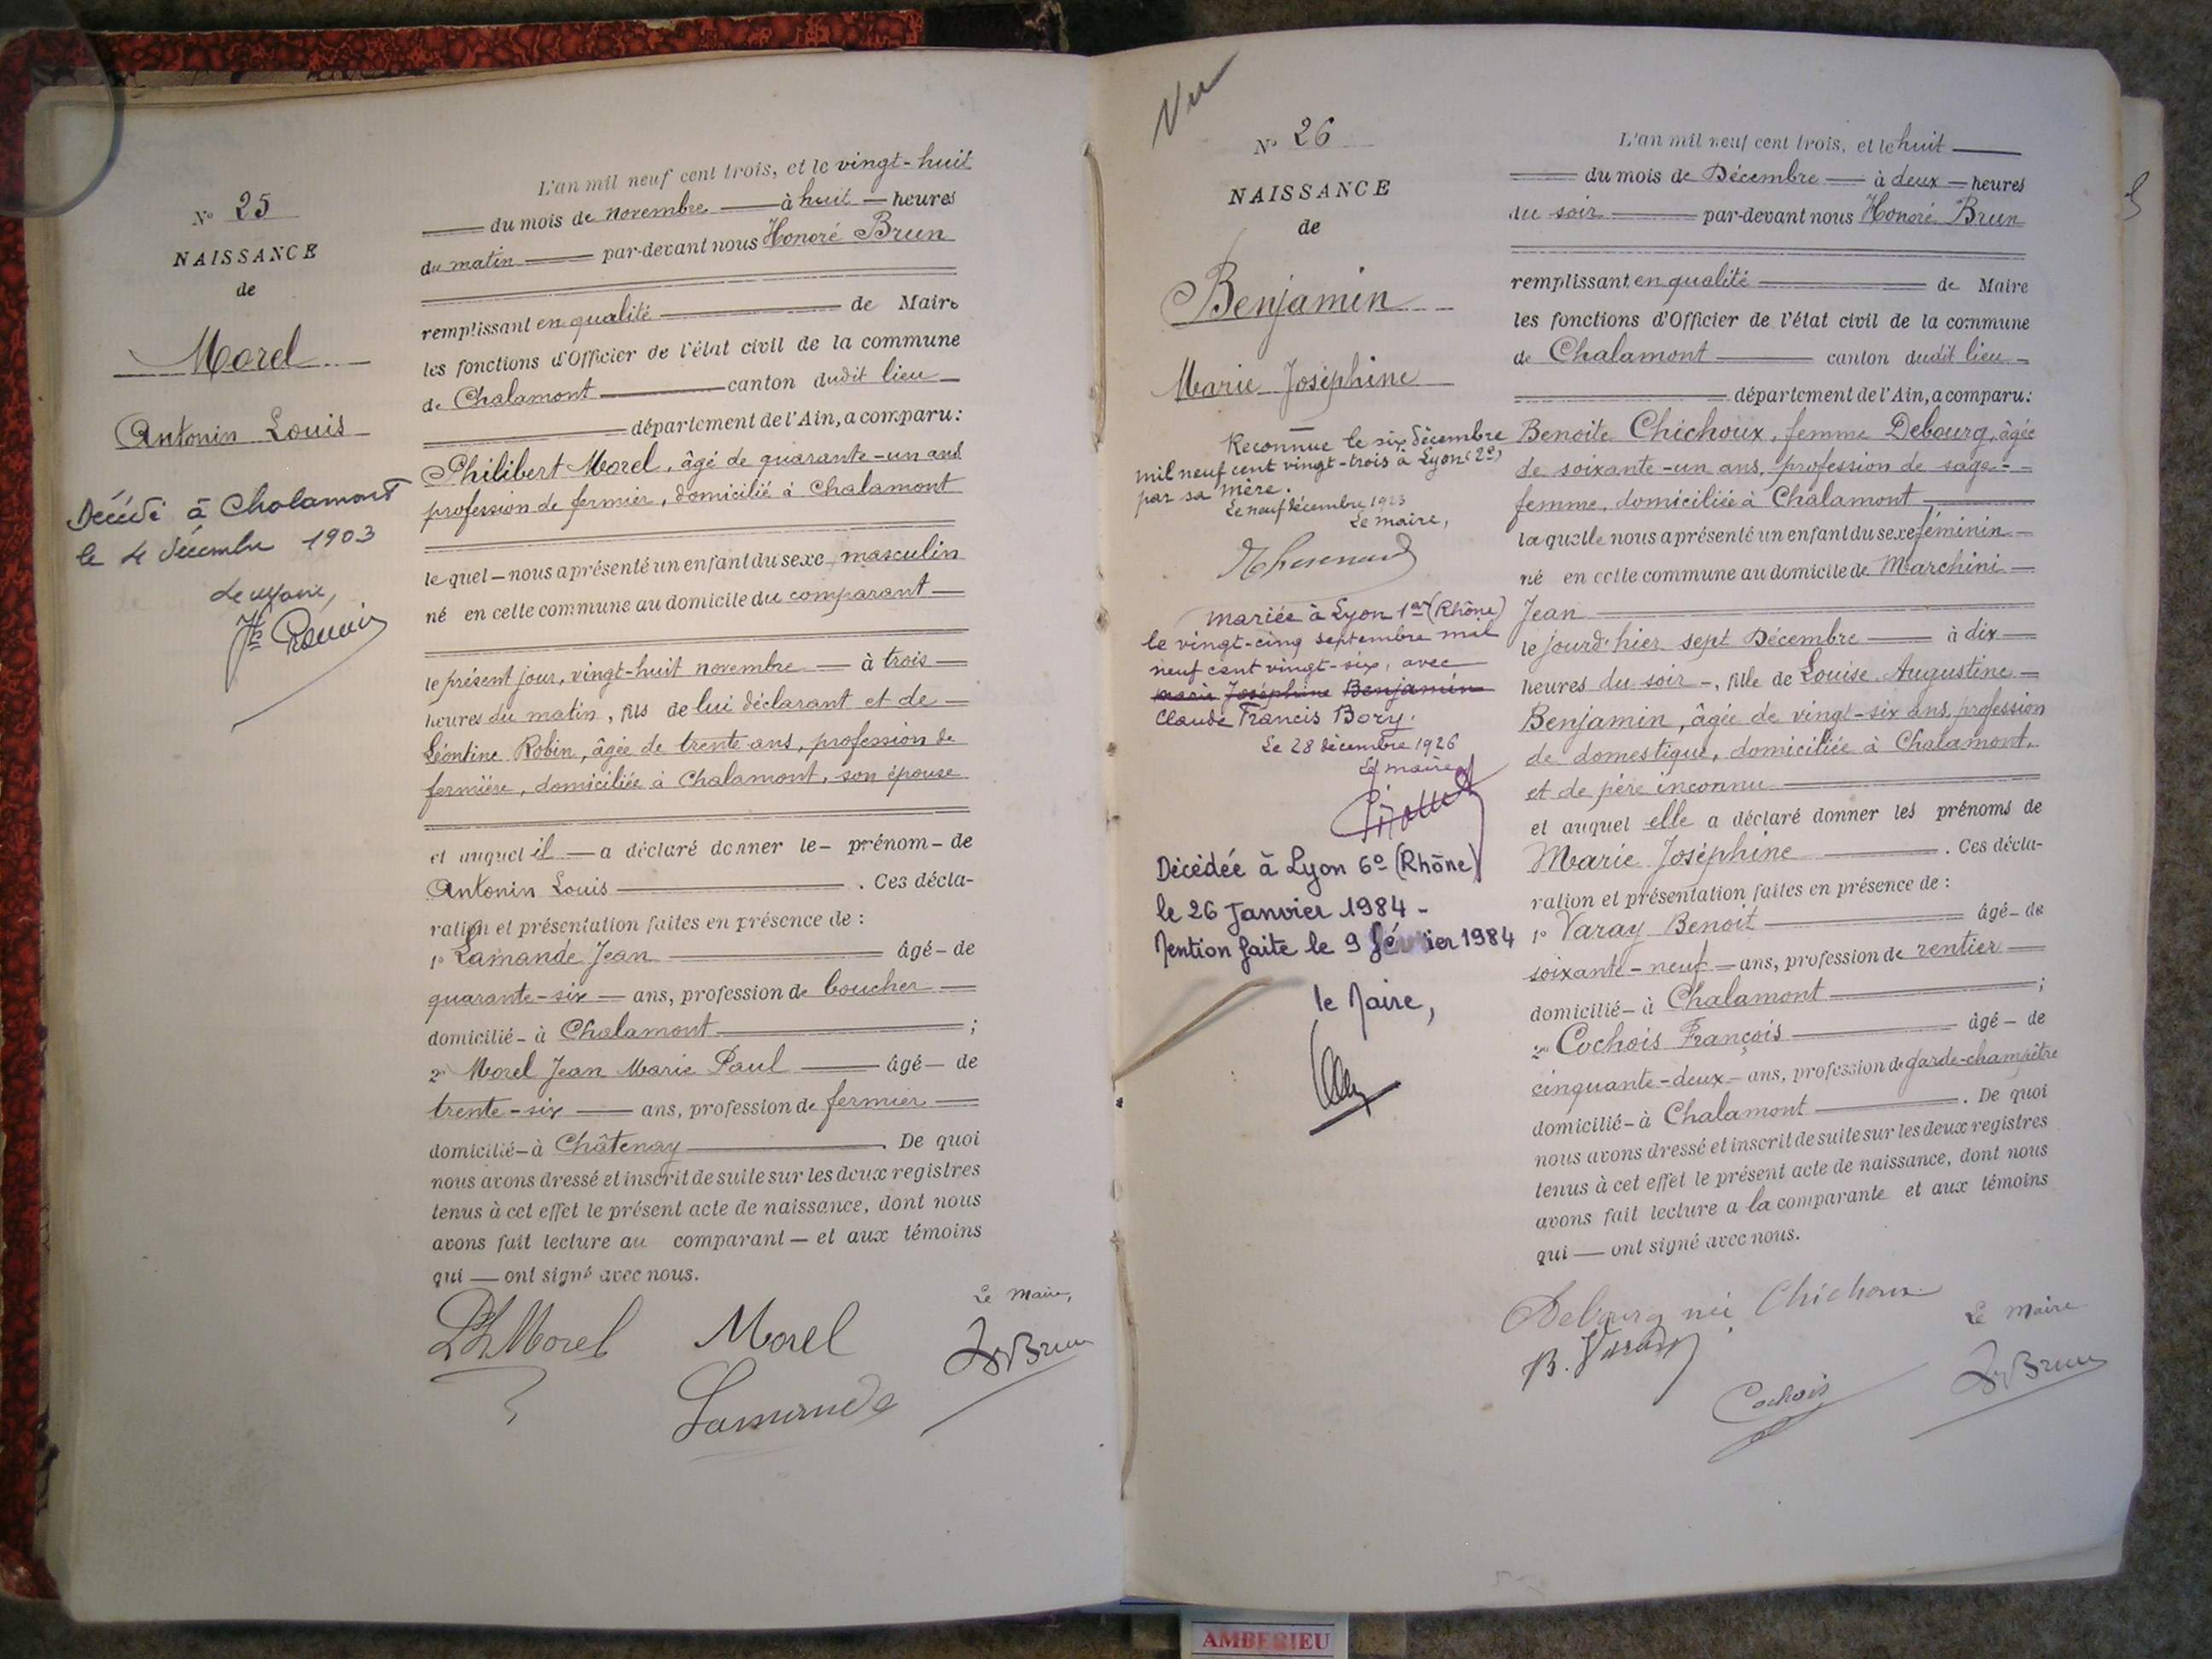 N° 25
NAISSANCE
de
Morel
Antonin Louis
Décédé à Chalamont
le 4 décembre 1903
Le Maire,
L'an mil neuf cent trois, et le vingt-huit
du mois de novembre — à huit — heures
du matin — par-devant nous Honoré Brun
remplissant en qualité — de Maire
les fonctions d'Officier de l'état civil de la commune
de Chalamont — canton dudit lieu —
département de l'Ain, a comparu:
Philibert Morel, âgé de quarante-un ans
profession de fermier, domicilié à Chalamont
lequel — nous a présenté un enfant du sexe masculin
né en cette commune au domicile du comparant —
le présent jour, vingt-huit novembre — à trois —
heures du matin, fils de lui déclarant et de —
Léontine Robin, âgée de trente ans, profession de
fermière, domiciliée à Chalamont, son épouse
et auquel il — a déclaré donner le - prénom - de
Antonin Louis — . Ces décla-
ration et présentation faites en présence de :
1° Lamande Jean — âgé - de
quarante-six — ans, profession de boucher —
domicilié - à Chalamont — ;
2° Morel Jean Marie Paul — âgé — de
trente-six — ans, profession de fermier —
domicilié - à Châtenay — . De quoi
nous avons dressé et inscrit de suite sur les deux registres
tenus à cet effet le présent acte de naissance, dont nous
avons fait lecture au comparant — et aux témoins
qui — ont signé avec nous.
Le Maire,
Ph Morel Morel
Lamande
Hré Brun
Vu
N° 26
NAISSANCE
de
Benjamin
Marie Joséphine
Reconnue le six décembre
mil neuf cent vingt-trois à Lyon (2e)
par sa mère.
Le neuf décembre 1923
Le maire,
Mariée à Lyon 1er (Rhône)
le vingt-cinq septembre mil
neuf cent vingt-six, avec
Marie Joséphine Benjamin
Claude Francis Bory.
Le 28 décembre 1926
Le maire
Décédée à Lyon 6e (Rhône)
le 26 Janvier 1984 -
Mention faite le 9 février 1984
le Maire,
L'an mil neuf cent trois, et le huit —
— du mois de Décembre — à deux — heures
du soir — par-devant nous Honoré Brun
remplissant en qualité — de Maire
les fonctions d'Officier de l'état civil de la commune
de Chalamont — canton dudit lieu —
département de l'Ain, a comparu:
Benoite Chichoux, femme Debourg, âgée
de soixante-un ans, profession de sage-
femme, domiciliée à Chalamont —
laquelle nous a présenté un enfant du sexe féminin —
né en cette commune au domicile de Marchini —
Jean —
le jourd'hier sept Décembre — à dix —
heures du soir -, fille de Louise Augustine —
Benjamin, âgée de vingt-six ans, profession
de domestique, domiciliée à Chalamont,
et de père inconnu —
et auquel elle a déclaré donner les prénoms de
Marie Joséphine — . Ces décla-
ration et présentation faites en présence de :
1° Varay Benoit — âgé - de
soixante-neuf — ans, profession de rentier —
domicilié - à Chalamont — ;
2° Cochois François — âgé - de
cinquante-deux - ans, profession de garde-champêtre
domicilié - à Chalamont — . De quoi
nous avons dressé et inscrit de suite sur les deux registres
tenus à cet effet le présent acte de naissance, dont nous
avons fait lecture a la comparante et aux témoins
qui — ont signé avec nous.
Debourg née Chichoux
Le Maire
B. Varay
Cochois
Hré Brun
AMBERIEU